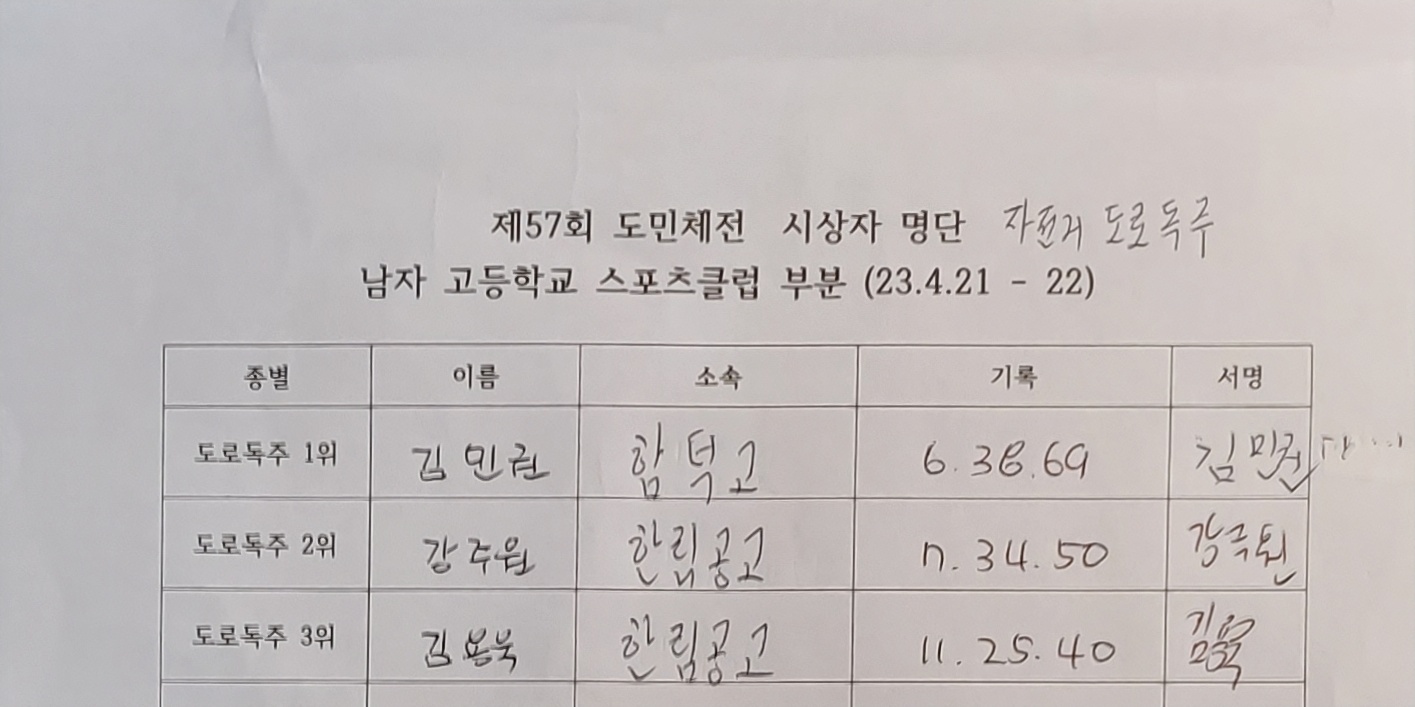 제57회 도민체전 시상자 명단 자전거 도로독주
남자 고등학교 스포츠클럽 부분 (23.4.21 - 22)
종별 이름 소속 기록 서명
도로독주 1위 김민권 함덕고 6.38.69 김민권
도로독주 2위 강주원 한림공고 7.34.50 강주원
도로독주 3위 김용욱 한림공고 11.25.40